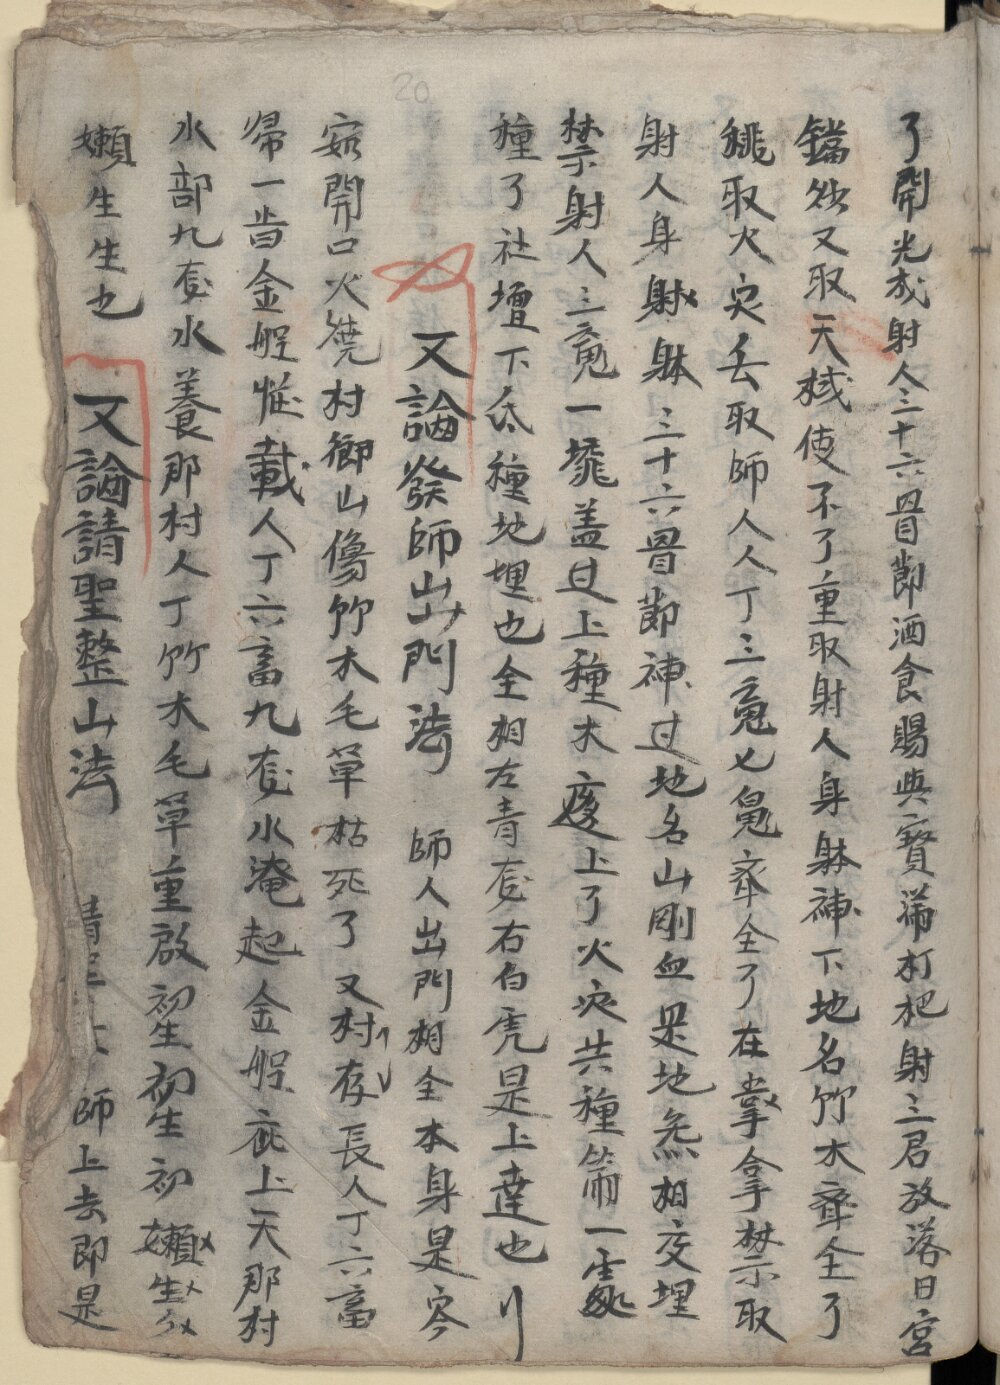 了開光或射人三十六骨節酒食賜與寳满打把射三君放落日宮
鐺然又取天棫使不了重取射人身躰神下地名竹木齊全了
穐取火灾去取師人人丁三䰟七䰟齊全了在掌拿禁取
射人身射躰三十六骨節神过地名山剛血是地炁相交埋
禁射人三䰟一㙡盖过上種木處上了火灾共種筲一宝
種了社壇下底種地埋也全相左青䰧右白虎是上達也
又論發師出門法 師人出門相全本身是容
㝧開口火燒村鄉山傷竹木毛草枯死了又村存長人丁六畜
帰一皆金船㨿載人丁六畜九䰧水淹起金船底上天那村
水部九䰧水養那村人丁竹木毛草重啟初生初生初嬾生
嬾生生也 又論請聖整山法 師上去即是
20